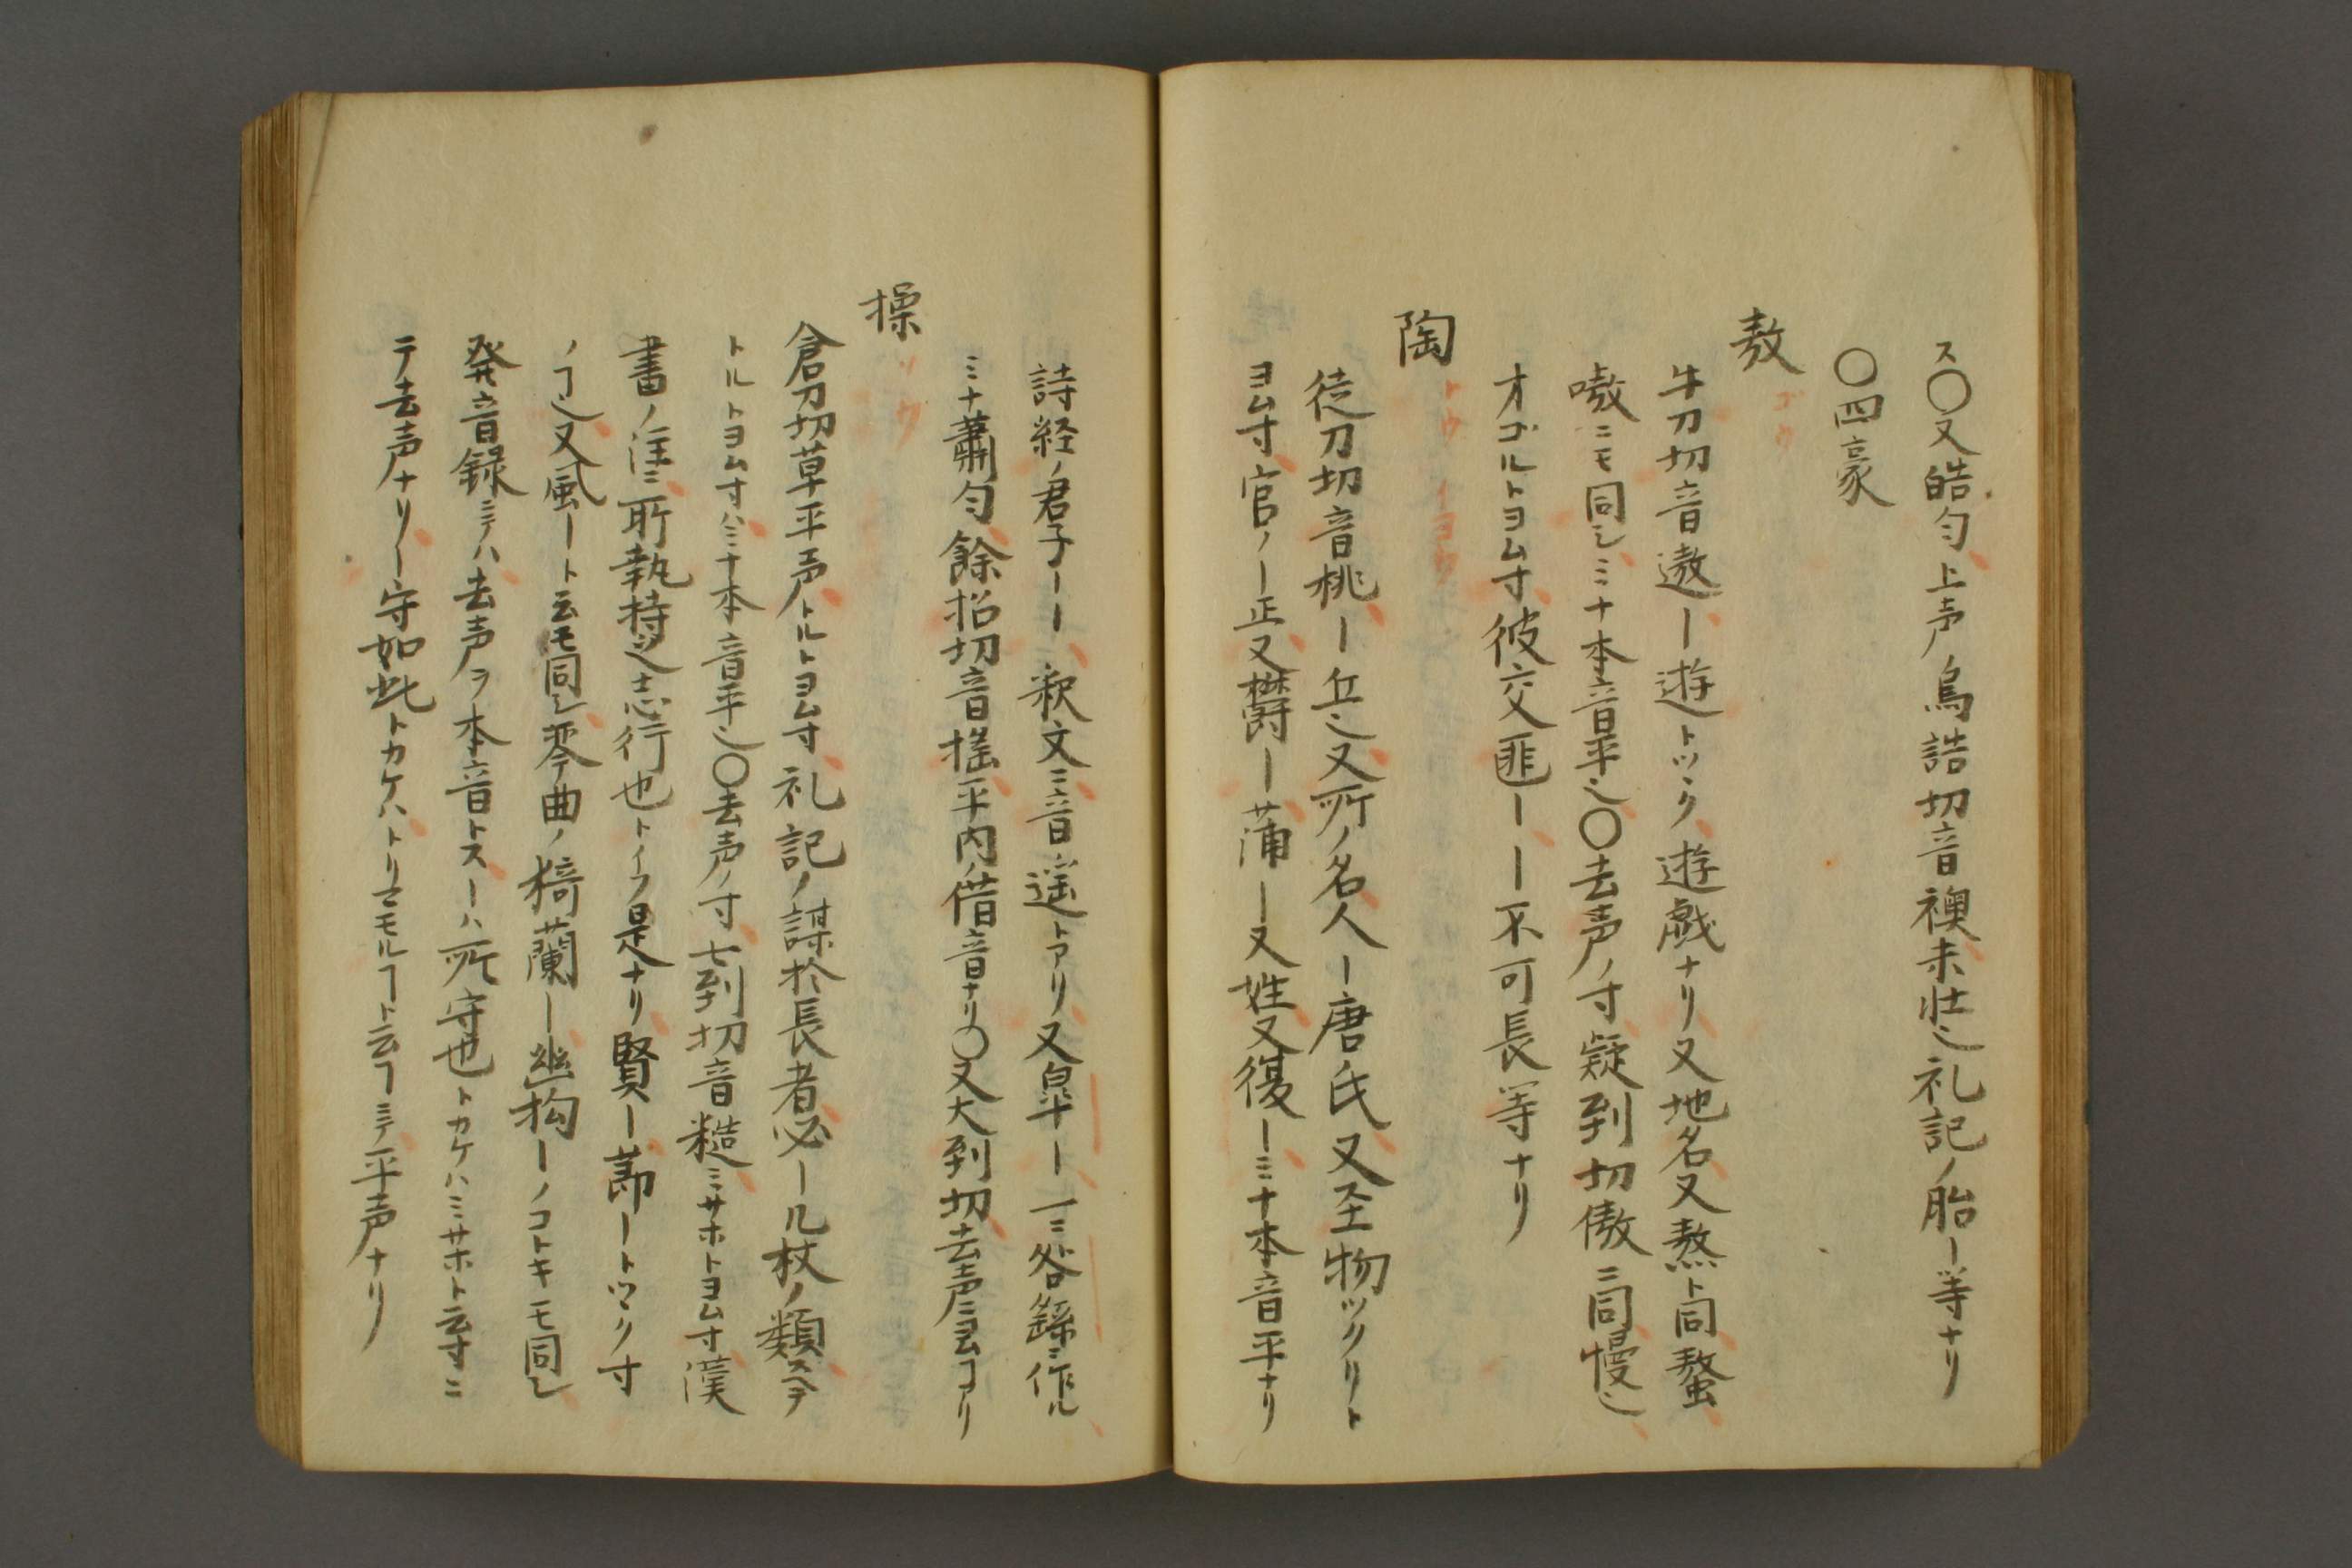 ス〇又皓匀上声ノ烏誥切音襖未壮也礼記ノ胎ー等ナリ
〇四豪
敖 ゴウ
牛刀切音遨ー遊トツヽク遊戯ナリ又地名又熬ト同螯
嗷ニモ同シミナ本音平也〇去声ノ寸疑到切傲ニ同慢也
オゴルトヨム寸彼交匪ーー不可長等ナリ
陶 トウ イヨウ
徒刀切音桃ー丘也又所ノ名人ー唐氏又坙物ツクリト
ヨム寸官ノー正又欝ー蒲ー又姓又復ーミナ本音平ナリ
詩経ノ君子ーー釈文ニ音遥トアリ又皐ー一ニ咎繇ニ作ル
ミナ蕭匀餘招切音揺平内ノ借音ナリ〇又大到切去声ニヨムヿアリ
操 ソウ
倉刀切草平声トルトヨム寸礼記ノ謀於長者必ール杖ノ類スヘテ
トルトヨム寸ハミナ本音平也〇去声ノ寸七到切音糙ミサホトヨム寸漢
書ノ注ニ所執持之志行也トイフ是ナリ賢ー節ートツヽク寸
ノヿ也又風ート云モ同シ琴曲ノ猗蘭ー幽拘ーノコトキモ同シ
発音録ミテハ去声ヲ本音トスーハ所守也トカケハミサホト云寸ニ
テ去声ナリー守如此トカケハトリマモルヿト云ヿミテ平声ナリ